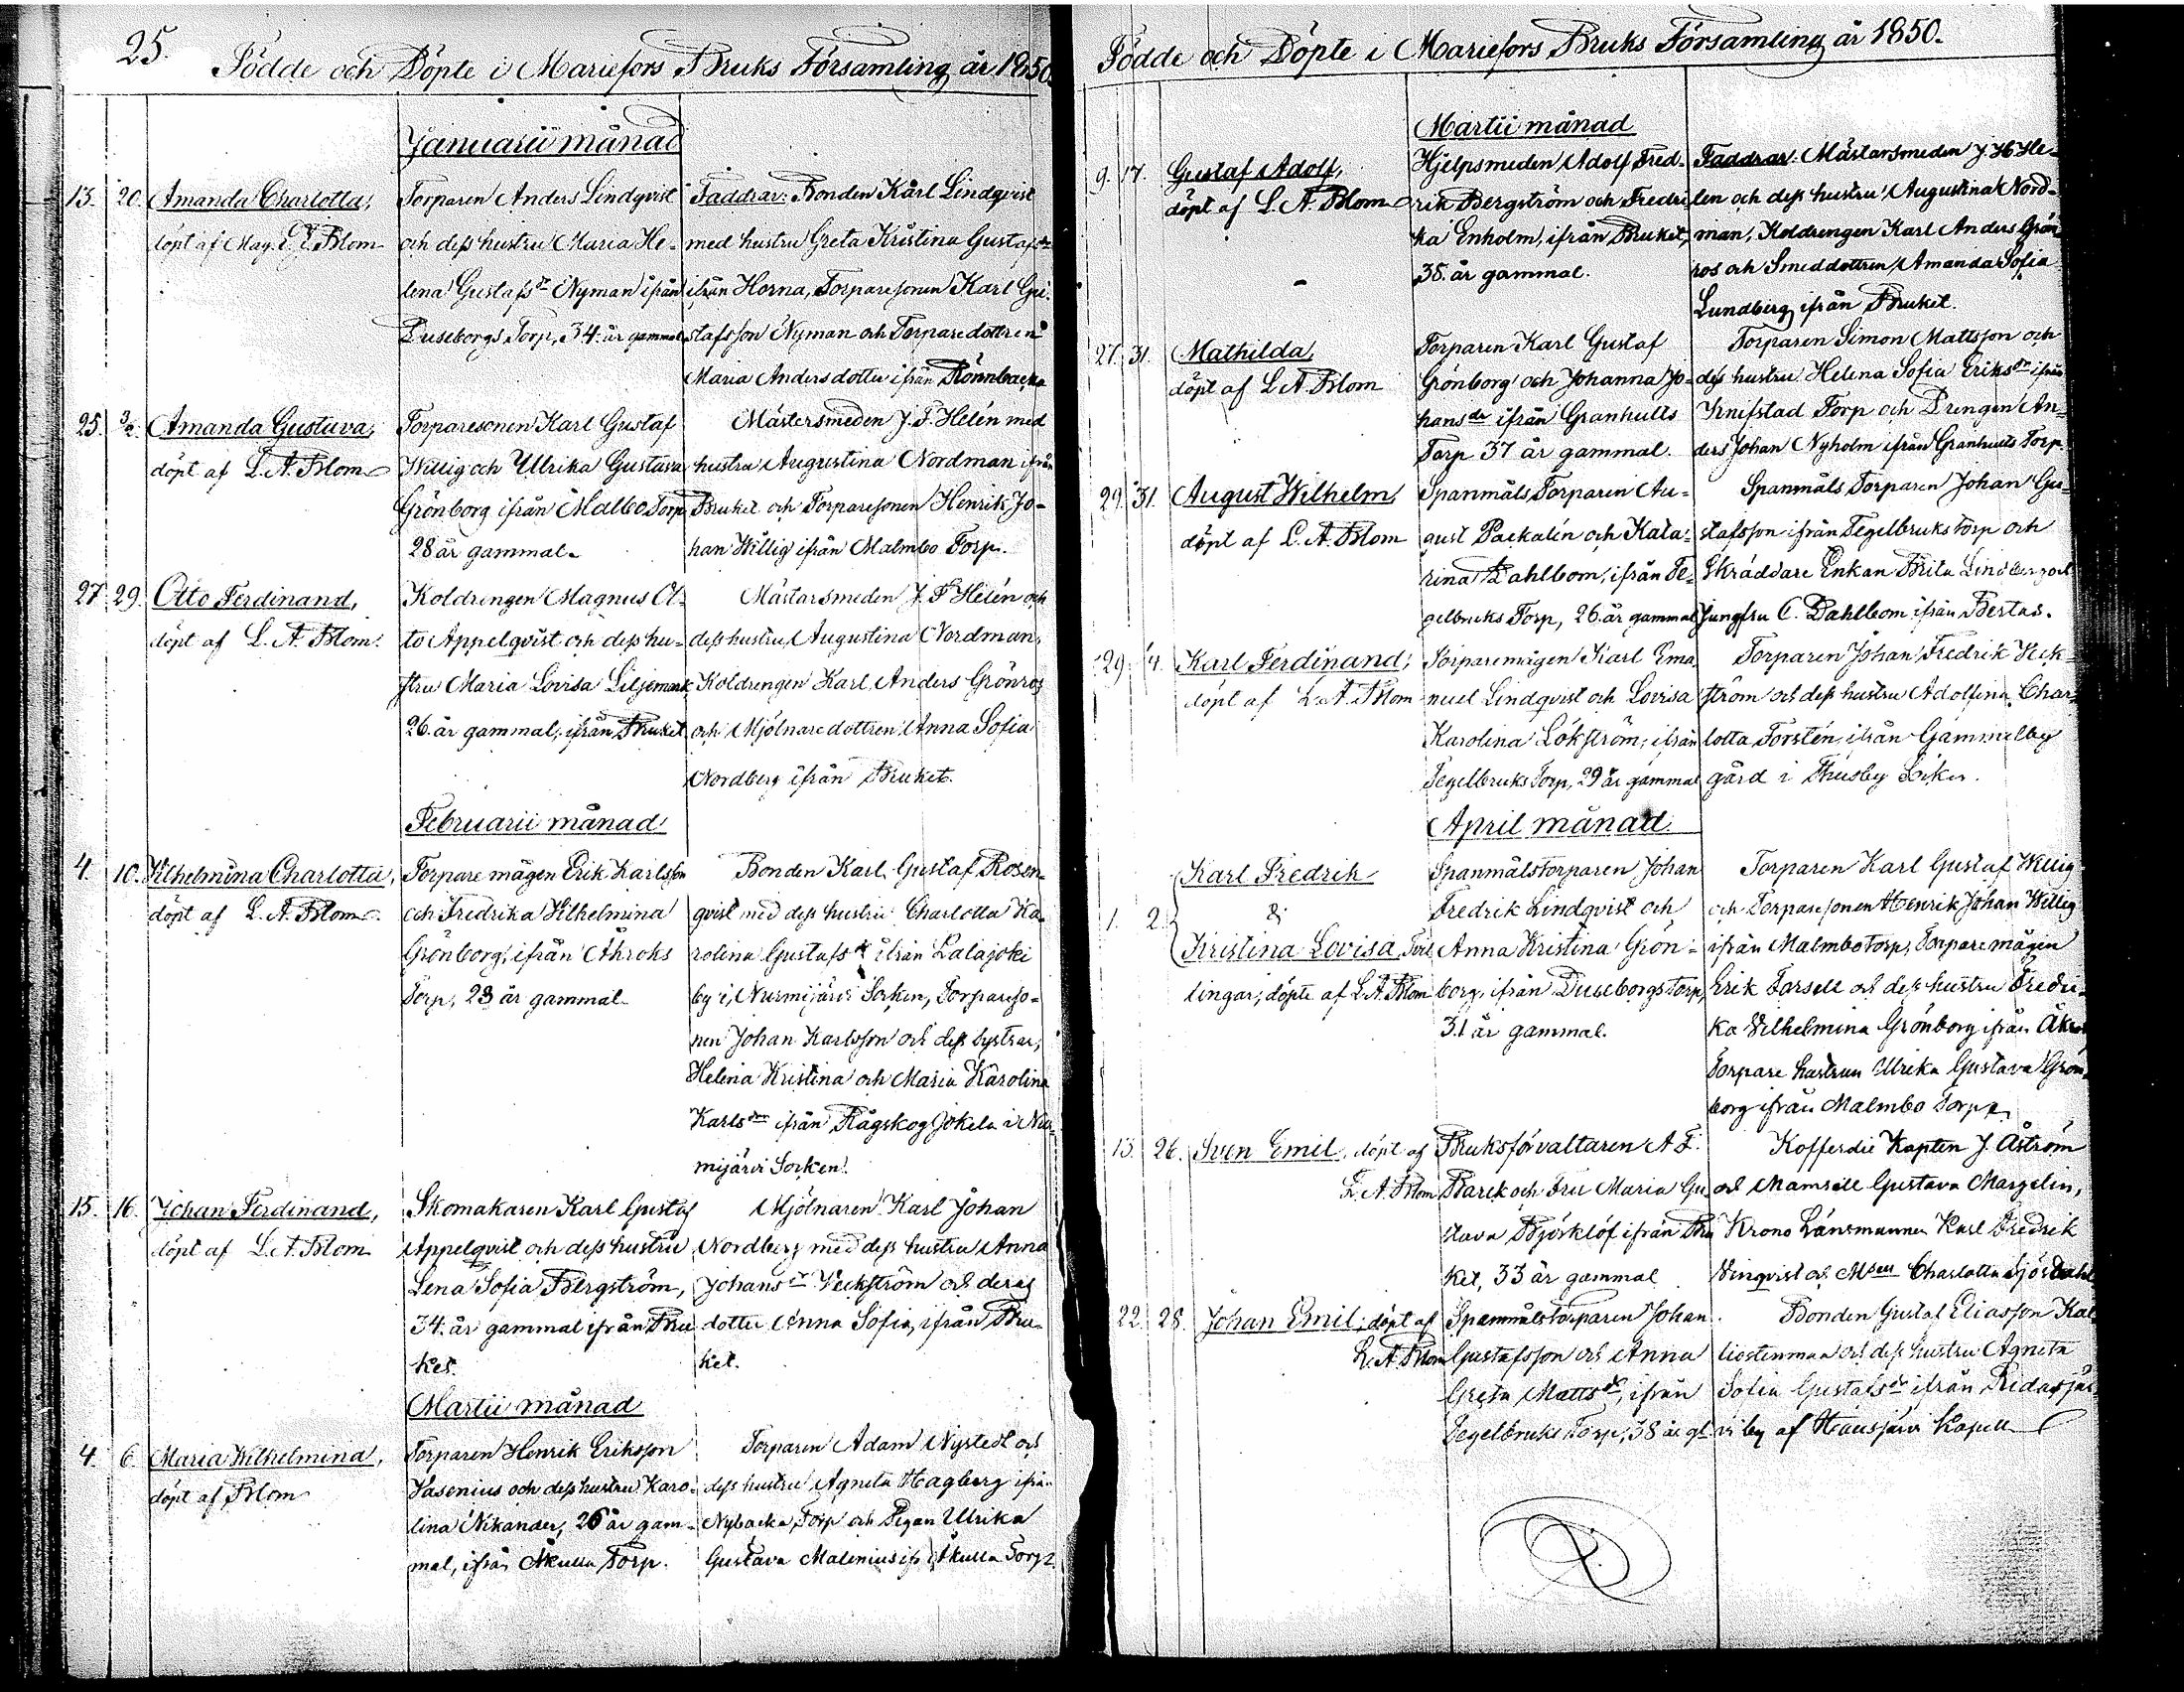 25.
Födde och Döpte i Mariefors Bruks Församling år 1850.
Januarii månad
13. 20. Amanda Charlotta, Torparen Anders Lindqvist Faddrar: Bonden Karl Lindqvist
döpt af Mag. Blom och dess hustru Maria He- med hustru Greta Kristina Gustafsdr
lena Gustafsdr Nyman ifrån ifrån Horna, Torparesonen Karl Gu-
Duseborgs Torp, 34. år gammal stafsson Nyman och Torparedottren
Maria Andersdotter ifrån Rönnbacka
25. 3/2. Amanda Gustava, Torparesonen Karl Gustaf Mästersmeden J. F. Helén med
döpt af L. A. Blom Willig och Ulrika Gustava hustru Augustina Nordman ifrån
Grönborg ifrån Malbo Torp Bruket och Torparesonen Henrik Jo-
28 år gammal. han Willig ifrån Malmbo Torp.
27 29. Otto Ferdinand, Koldrengen Magnus Ot- Mästarsmeden J. F Helén och
döpt af L. A. Blom. to Appelqvist och dess hu- dess hustru Augustina Nordman,
stru Maria Lovisa Liljemark Koldrengen Karl Anders Grönros
26. år gammal, ifrån Bruket och Mjölnaredottren Anna Sofia
Nordberg ifrån Bruket.
Februarii månad
4. 10. Vilhelmina Charlotta, Torpare mågen Erik Karlsson Bonden Karl Gustaf Rosen-
döpt af L. A. Blom. och Fredrika Vilhelmina qvist med dess hustru Charlotta Ka-
Grönborg, ifrån Åhroks rolina Gustafsdr ifrån Lalajoki
Torp, 23 år gammal. by i Nurmijärvi Socken, Torpareso-
nen Johan Karlsson och dess systrar,
Helena Kristina och Maria Karolina
Karlsdr ifrån Rågskog Jokela i Nur-
mijärvi Socken.
15. 16. Johan Ferdinand, Skomakaren Karl Gustaf Mjölnaren Karl Johan
döpt af L. A. Blom Appelqvist och dess hustru Nordberg med dess hustru Anna
Lena Sofia Bergström, Johansdr Veckström och deras
34. år gammal ifrån Bru dotter Anna Sofia, ifrån Bru-
ket. ket.
Martii månad
4. 6. Maria Wilhelmina, Torparen Henrik Eriksson Torparen Adam Nystedt och
döpt af Blom Vasenius och dess hustru Karo- dess hustru Agneta Hagberg ifrån
lina Nikander, 26 år gam- Nybacka Torp och Pigan Ulrika
mal, ifrån Åkulla Torp. Gustava Malenius ifr Åkulla Torp.
Födde och Döpte i Mariefors Bruks Församling år 1850.
Martii månad
9. 17. Gustaf Adolf, Hjelpsmeden Adolf Fred- Faddrar: Mästarsmeden J. H He-
döpt af L. A. Blom rik Bergström och Fredri len och dess hustru Augustina Nord-
ka Enholm, ifrån Bruket, man, Koldrengen Karl Anders Grön
38. år gammal. ros och Smeddottren Amanda Sofia
Lundberg ifrån Bruket.
27. 31. Mathilda, Torparen Karl Gustaf Torparen Simon Mattsson och
döpt af L A. Blom Grönborg och Johanna Jo- dess hustru Helena Sofia Eriksdr ifrån
hansdr ifrån Granhults Knifstad Torp och Drengen An-
Torp 37 år gammal. ders Johan Nyholm ifrån Granhults Torp.
29. 31. August Wilhelm Spanmåls Torparen Au- Spanmåls Torparen Johan Gu-
döpt af L. A. Blom gust Packalén och Kata- stafsson ifrån Tegelbruks Torp och
rina Dahlbom, ifrån Te- Skräddare Enkan Brita Lindberg och
gelbruks Torp, 26. år gammal Jungfru C. Dahlbom ifrån Bertas.
29. 4. Karl Ferdinand, Torparemågen Karl Ema Torparen Johan Fredrik Hek-
döpt af L. A. Blom nuel Lindqvist och Lovisa ström och dess hustru Adolfina Char-
Karolina Lökström, ifrån lotta Forstén, ifrån Gammelby
Tegelbruks Torp, 29 år gammal gård i Thusby Socken.
April månad
Karl Fredrik Spanmålstorparen Johan Torparen Karl Gustaf Willig
1. 2. & Fredrik Lindqvist och och Torparesonen Henrik Johan Willig
Kristina Lovisa, Tvil Anna Kristina Grön- ifrån Malmbo torp, Torparemågen
lingar, döpte af L. A. Blom borg, ifrån Duseborgs Torp, Erik Forsell och dess hustru Fredri-
31 år gammal. ka Vilhelmina Grönborg ifrån
Torpare hustrun Ulrika Gustava Grön-
borg ifrån Malmbo Torp.
13. 26. Sven Emil, döpt af Bruksförvaltaren A F. Kofferdie Kapten J. Åström
L. A. Blom Barck och Fru Maria Gu och Mamsell Gustava Margelin,
stava Björklöf ifrån Bru Krono Länsmannen Karl Fredrik
ket, 33 år gammal och Msell Charlotta Sjödahl
22. 28. Johan Emil, döpt af Spanmålstorparen Johan Bonden Gustaf Eliasson Kal
L. A. Blom Gustafsson och Anna liostenmaa och dess hustru Agneta
Greta Mattsdr, ifrån Sofia Gustafsdr ifrån Ridasjär-
Tegelbruks Torp, 38 år gl vi by af Hausjärvi Kapell